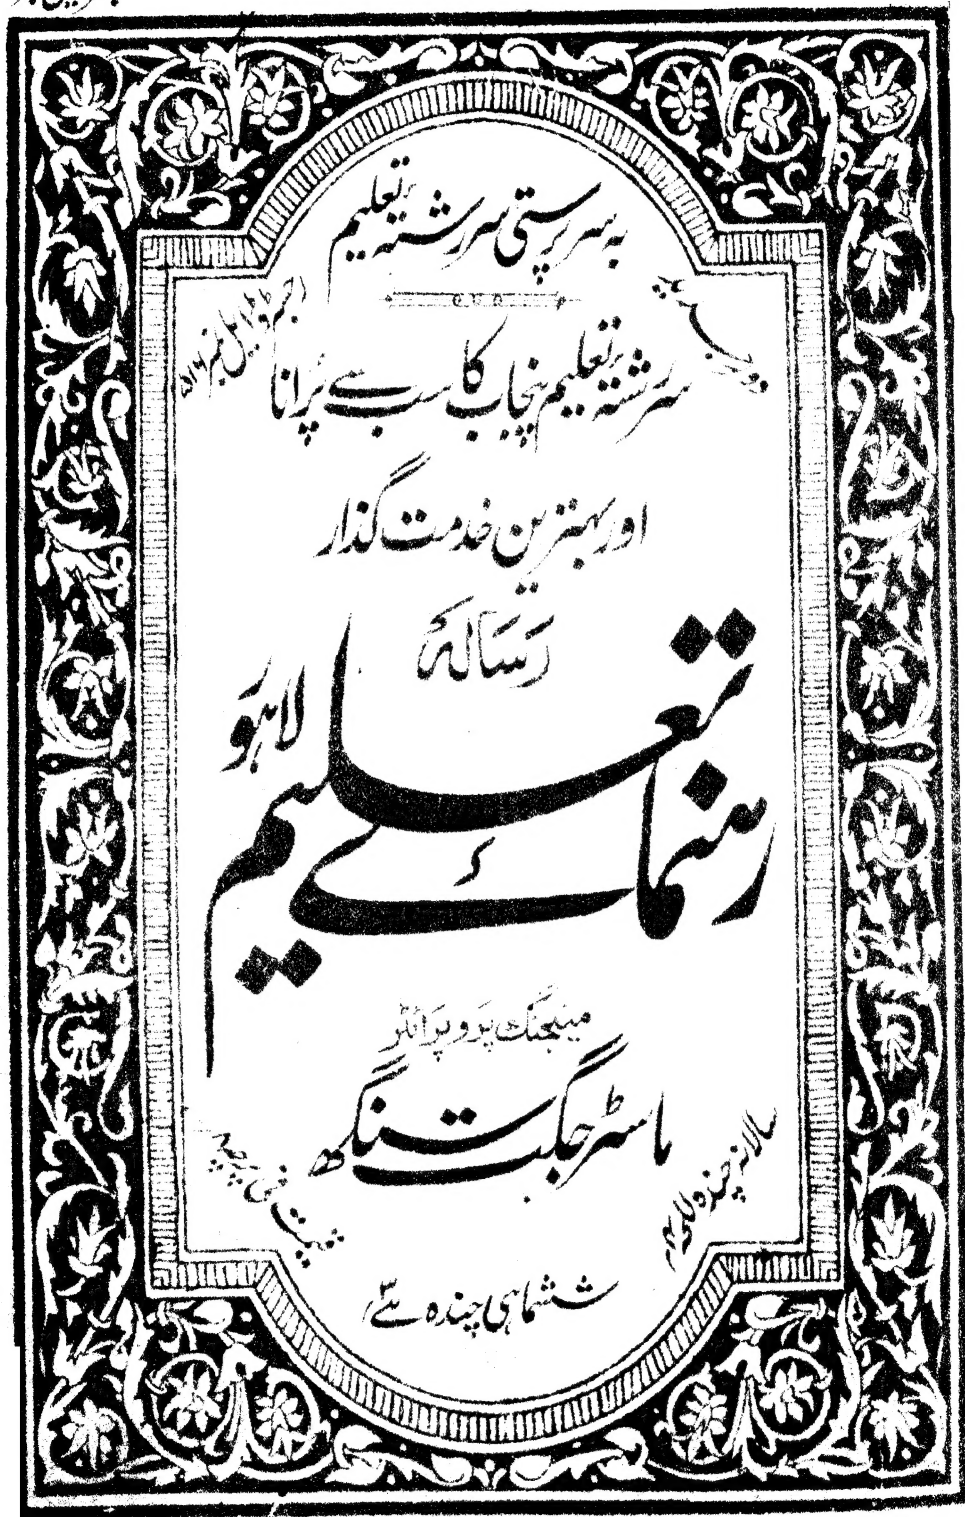 بہ سرپرستی سررشتہ تعلیم
رجسٹرڈ ایل نمبر
سررشتہ تعلیم پنجاب کا سب سے پُرانا
اور بہترین خدمت گذار
رسالہ
رہنمائے تعلیم لاہور
منیجنگ پروپرائٹر
ماسٹر جگت سنگھ
سالانہ چندہ
قیمت فی پرچہ
ششماہی چندہ